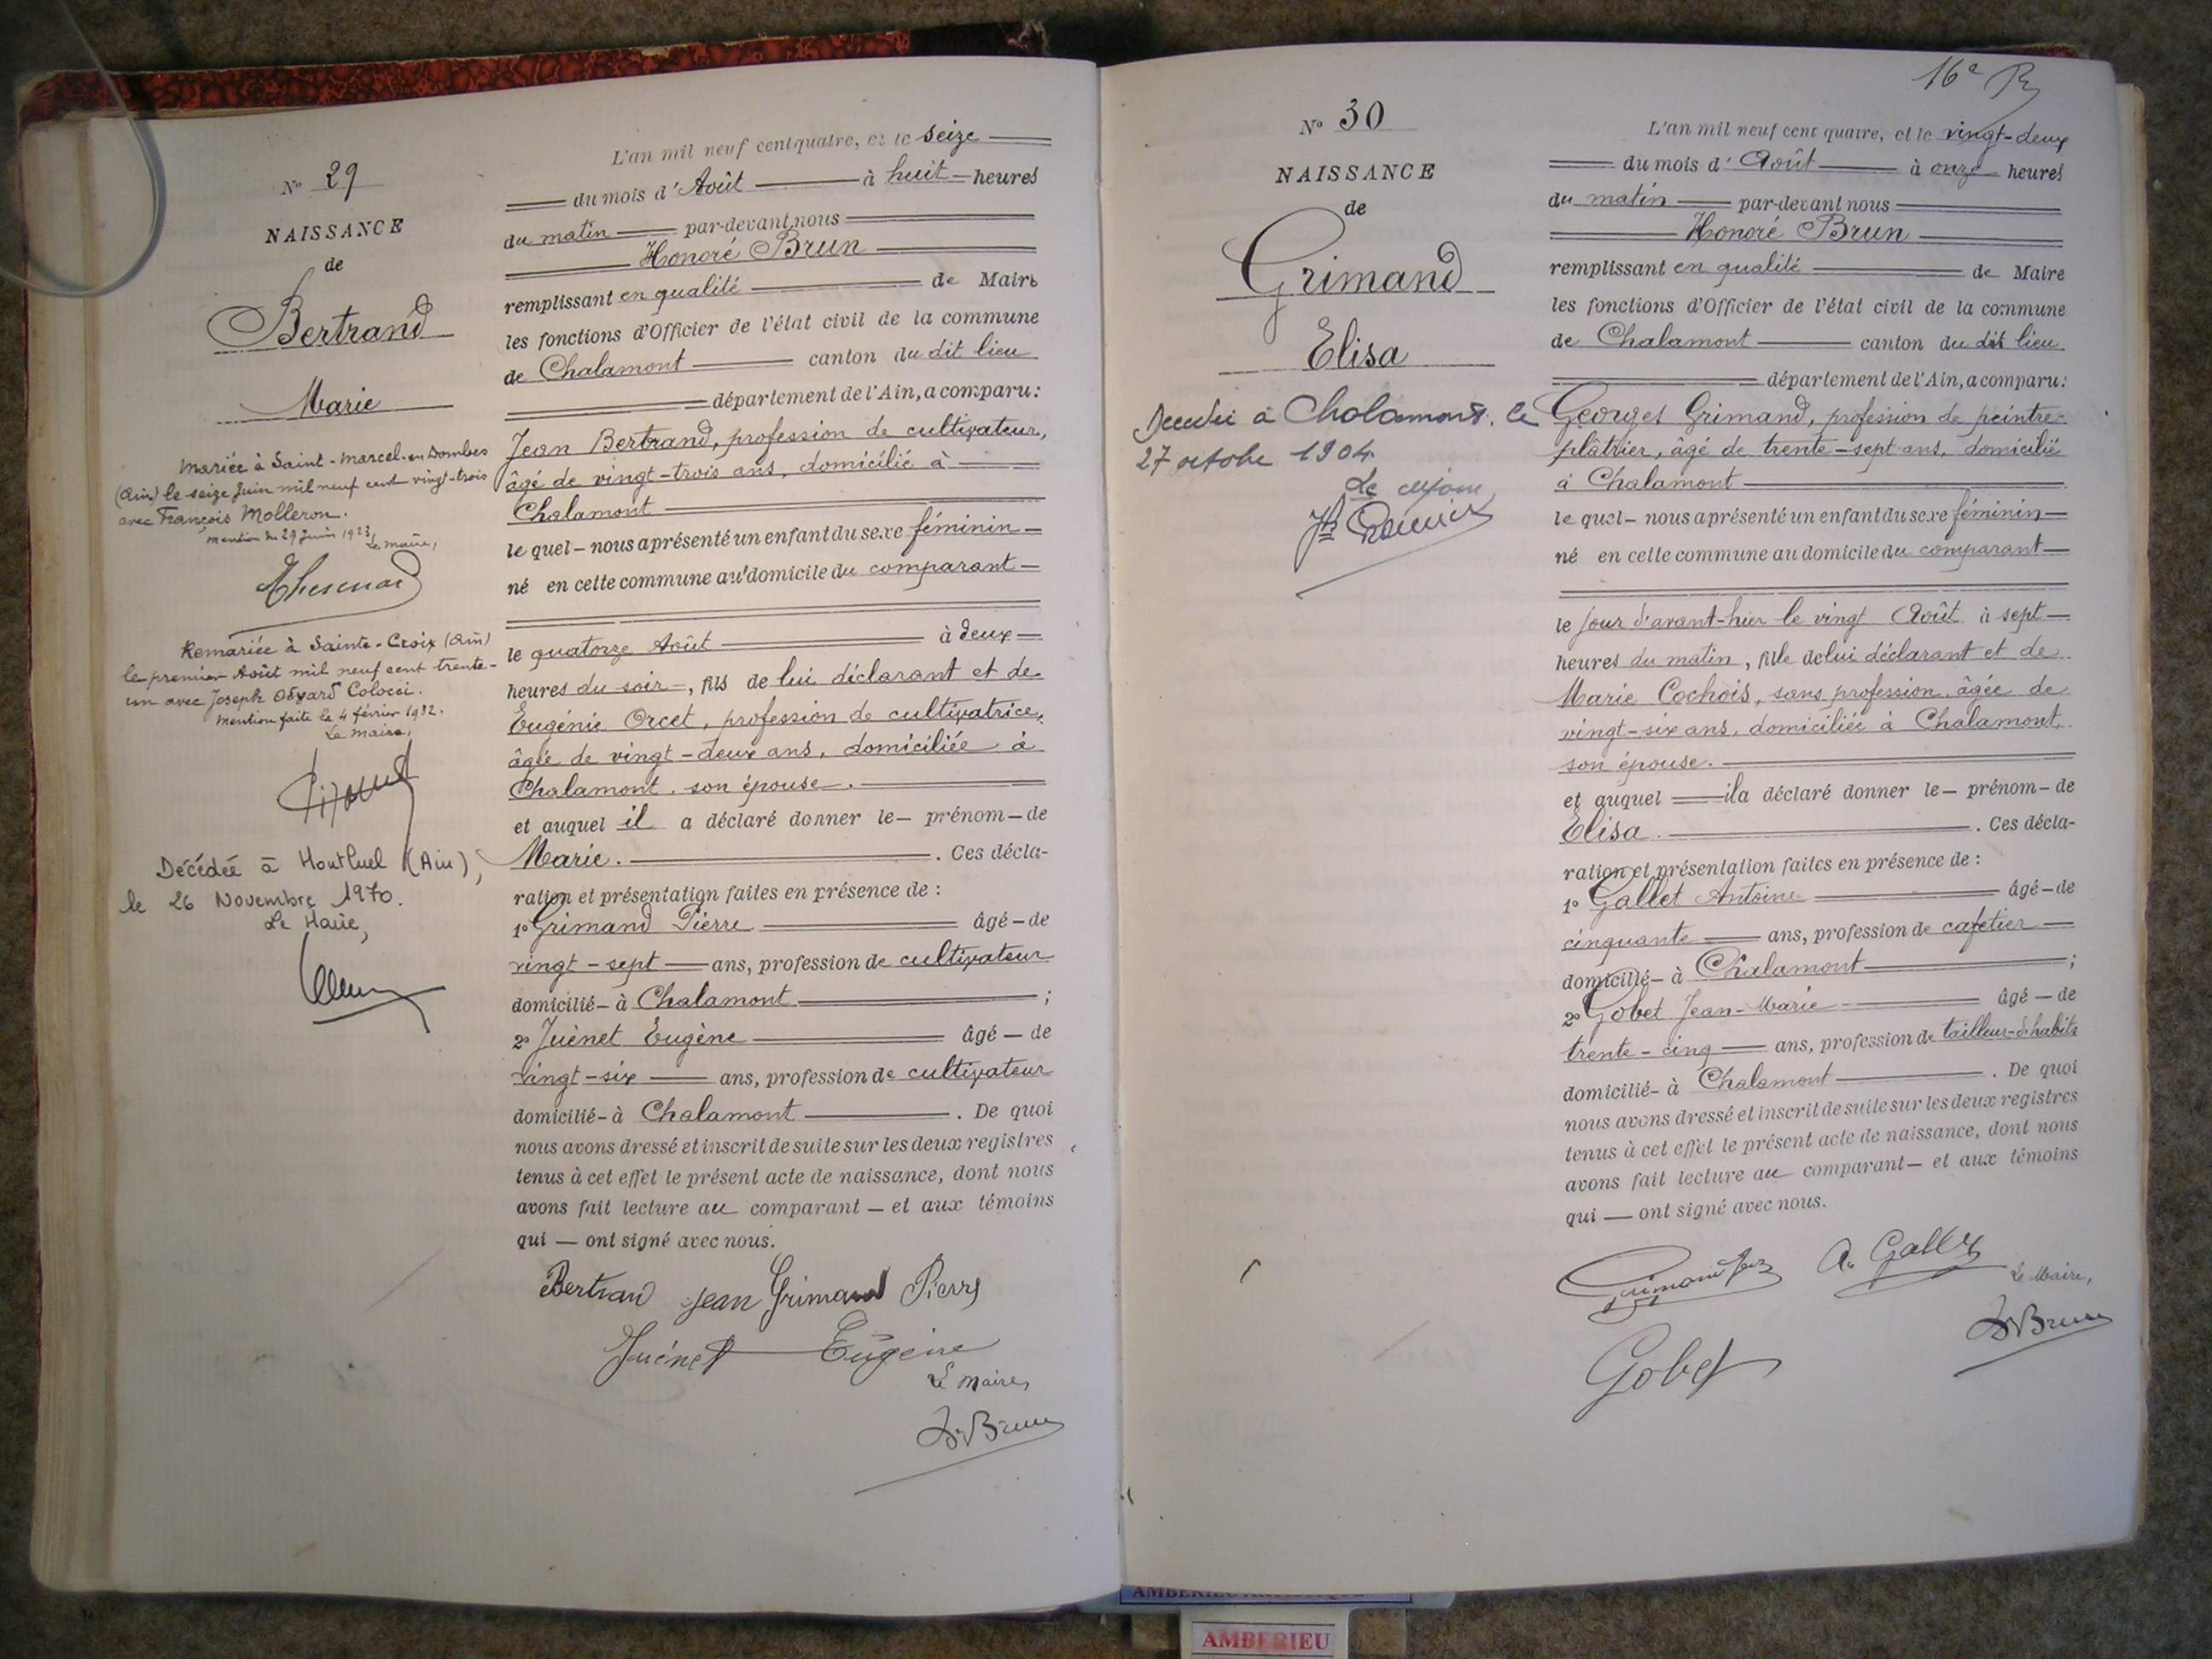 N° 29
NAISSANCE
de
Bertrand
Marie
Mariée à Saint-Marcel-en-Dombes
(Ain) le seize Juin mil neuf cent vingt-trois
avec François Molleron.
mention du 29 juin 1923,
Le maire,
Remariée à Sainte-Croix (Ain)
le premier Août mil neuf cent trente-
un avec Joseph Odyard Colocci.
Mention faite le 4 février 1932.
Le maire,
Décédée à Montluel (Ain),
le 26 Novembre 1970.
Le Maire,
L'an mil neuf cent quatre, et le seize
du mois d'Août à huit heures
du matin par-devant nous
Honoré Brun
remplissant en qualité de Maire
les fonctions d'Officier de l'état civil de la commune
de Chalamont canton du dit lieu
département de l'Ain, a comparu:
Jean Bertrand, profession de cultivateur,
âgé de vingt-trois ans, domicilié à
Chalamont
le quel - nous a présenté un enfant du sexe féminin
né en cette commune au domicile du comparant
le quatorze Août à deux
heures du soir, fils de lui déclarant et de
Eugénie Orcet, profession de cultivatrice,
âgée de vingt-deux ans, domiciliée à
Chalamont, son épouse.
et auquel il a déclaré donner le - prénom - de
Marie. . Ces décla-
ration et présentation faites en présence de :
1° Grimand Pierre âgé - de
vingt-sept ans, profession de cultivateur
domicilié - à Chalamont ;
2° Juénet Eugène âgé - de
vingt-six ans, profession de cultivateur
domicilié - à Chalamont . De quoi
nous avons dressé et inscrit de suite sur les deux registres
tenus à cet effet le présent acte de naissance, dont nous
avons fait lecture au comparant - et aux témoins
qui - ont signé avec nous.
Bertrand Jean Grimand Pierre
Juénet Eugène
Le Maire,
Brun
16e
N° 30
NAISSANCE
de
Grimand
Elisa
Décédée à Chalamont. le
27 octobre 1904.
L'an mil neuf cent quatre, et le vingt-deux
du mois d'Août à onze heures
du matin par-devant nous
Honoré Brun
remplissant en qualité de Maire
les fonctions d'Officier de l'état civil de la commune
de Chalamont canton du dit lieu
département de l'Ain, a comparu:
Georges Grimand, profession de peintre-
plâtrier, âgé de trente-sept ans, domicilié
à Chalamont
le quel - nous a présenté un enfant du sexe féminin
né en cette commune au domicile du comparant
le jour d'avant-hier le vingt Août à sept
heures du matin, fille de lui déclarant et de
Marie Cochois, sans profession, âgée de
vingt-six ans, domiciliée à Chalamont,
son épouse.
et auquel il a déclaré donner le - prénom - de
Elisa. . Ces décla-
ration et présentation faites en présence de :
1° Gallet Antoine âgé - de
cinquante ans, profession de cafetier
domicilié - à Chalamont ;
2° Gobet Jean-Marie âgé - de
trente-cinq ans, profession de tailleur-d'habits
domicilié - à Chalamont . De quoi
nous avons dressé et inscrit de suite sur les deux registres
tenus à cet effet le présent acte de naissance, dont nous
avons fait lecture au comparant - et aux témoins
qui - ont signé avec nous.
Grimand A. Gallet
Le Maire,
Brun
Gobet
AMBERIEU